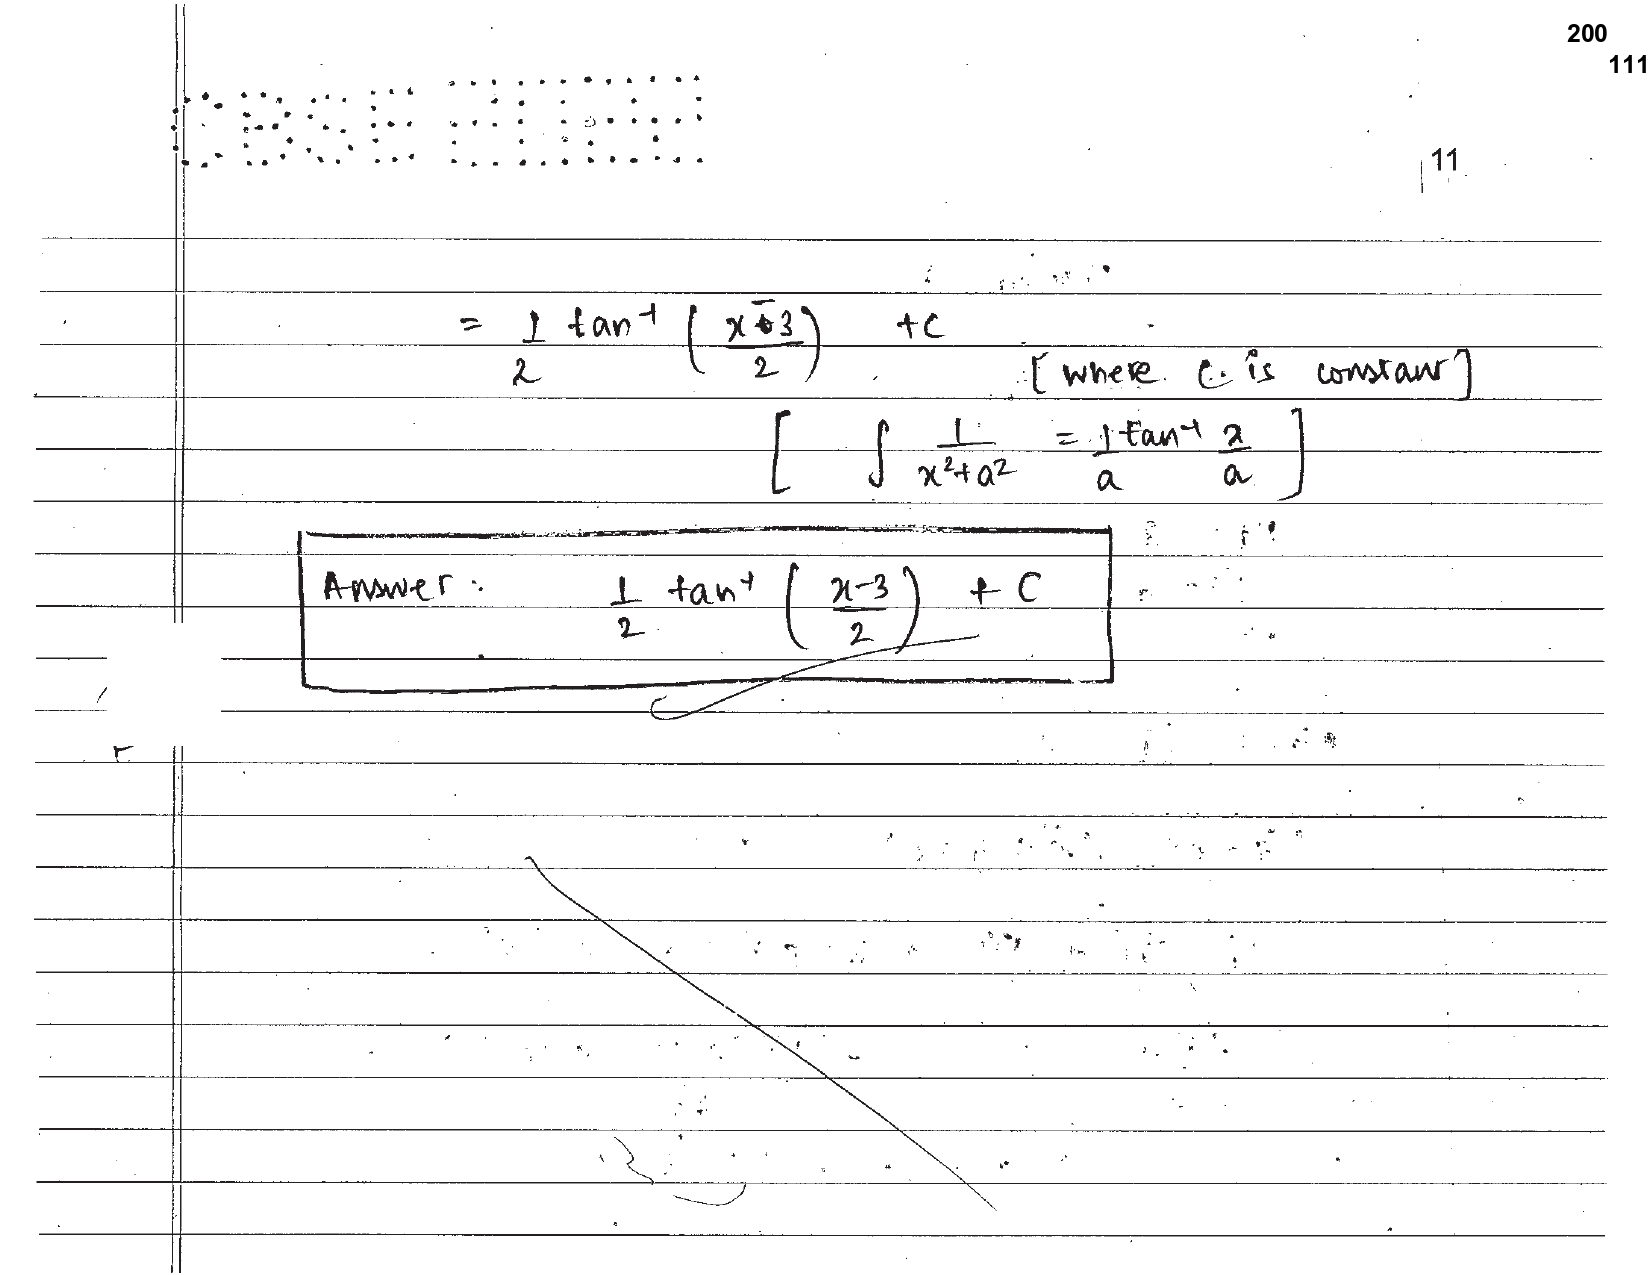 200
111
CBSE
11
= 1/2 tan⁻¹ (x-3/2) +C
[where C is constant]
[ ∫ 1/x²+a² = 1/a tan⁻¹ x/a ]
Answer: 1/2 tan⁻¹ (x-3/2) + C